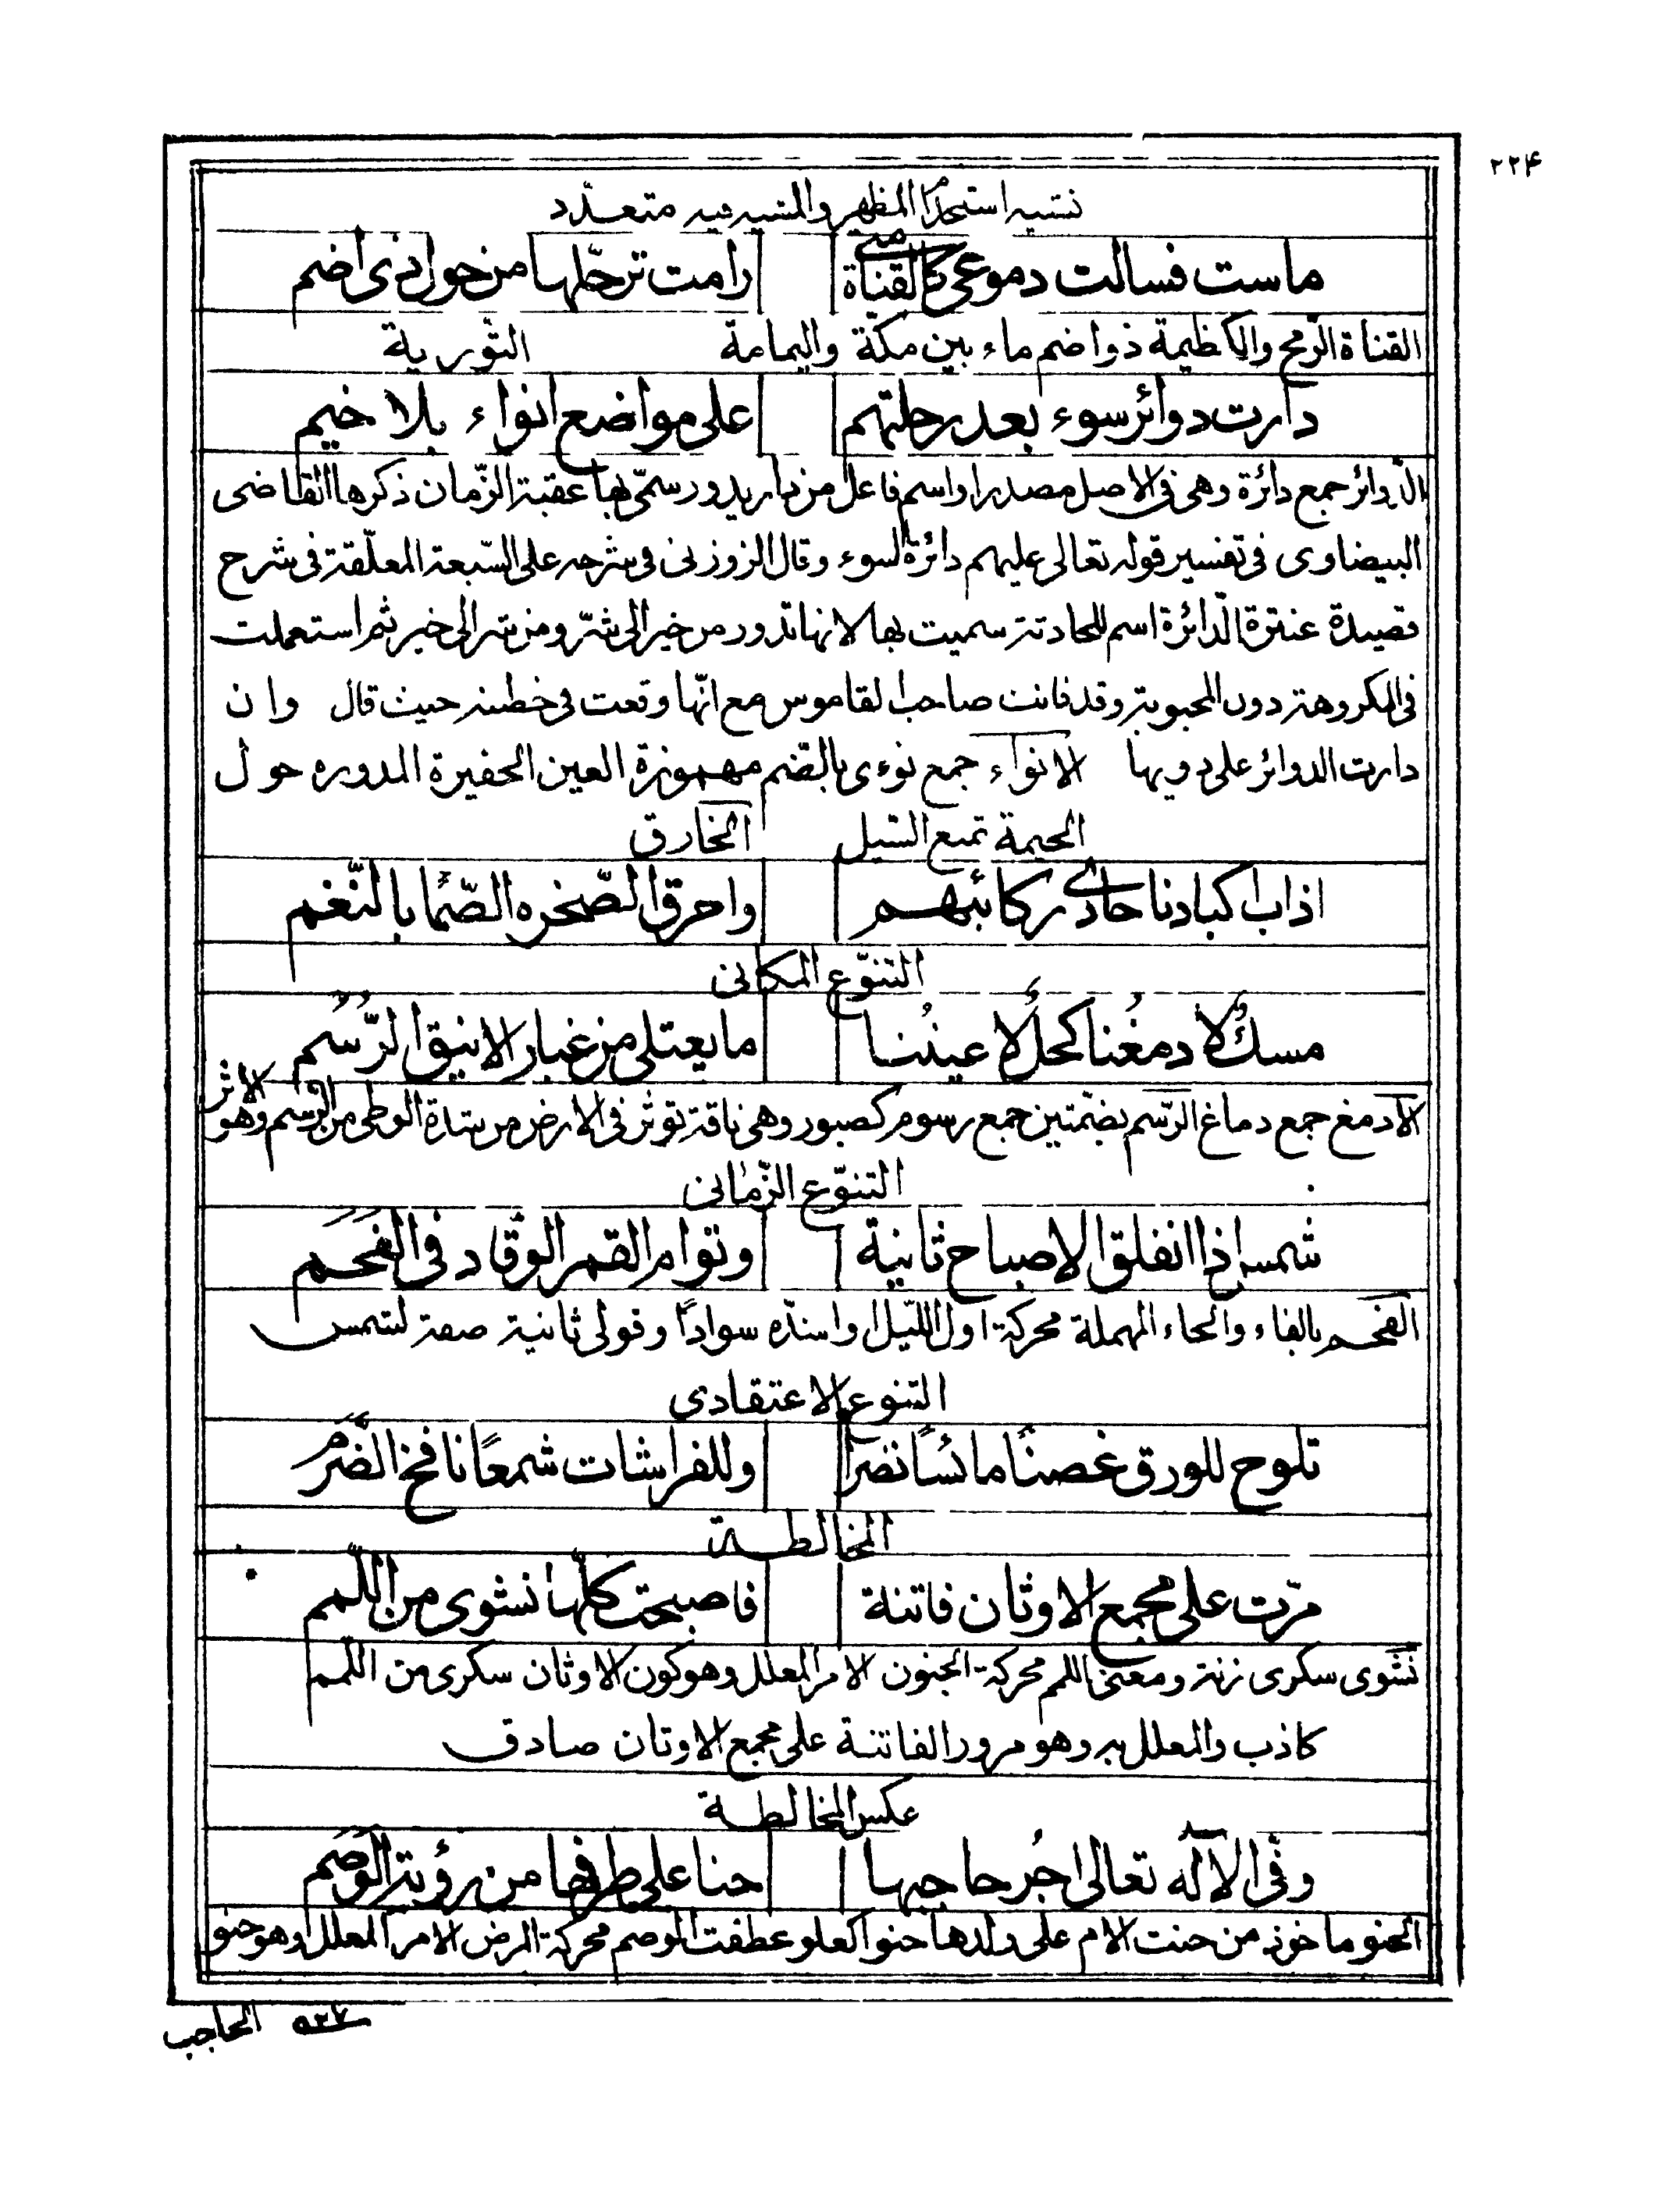 ٢٢۴
تشبيه استخدام المظهر والمشبه فيه متعدّد
ماست فسالت دموعى كالقناة متى رامت ترحّلها من حول ذى اضم
القناة الرّمح والكظيمة ذو اضم ماء بين مكّة واليمامة التّورية
دارت دوائر سوء بعد رحلتهم على مواضع انواء بلا خيم
الدّوائر جمع دائرة وهى فى الاصل مصدر او اسم فاعل من دار يدور سمّى بها عقبة الزّمان ذكرها القاضى
البيضاوى فى تفسير قوله تعالى عليهم دائرة السوء وقال الزوزنى فى شرحه على السّبعة المعلّقة فى شرح
قصيدة عنترة الدّائرة اسم للحادثة سميت بها لانها تدور من خير الى شرّ ومن شر الى خير ثم استعملت
فى المكروهة دون المحبوبة وقد فاتت صاحب القاموس مع انّها وقعت فى خطبته حيث قال وان
دارت الدوائر على ذويها الانواء جمع نوءى بالضّم مهموزة العين الحفيرة المدوره حول
الخيمة تمنع السّيل الخارق
اذاب اكبادنا حادى ركائبهم واحرق الصّخره الصّمّا بالنّغم
التنوّع المكانى
مسكٌ لادمغُنا كحلٌ لاعينُنا ما يعتلى من غبار الانيق الرُّسُم
الآدمغ جمع دماغ الرّسم بضمّتين جمع رسوم كصبور وهى ناقة تؤثر فى الارض من شدة الوطى من الرّسم وهو الاثر
التنوّع الزّمانى
شمس اذا انفلق الاصباح ثانية وتوام القمر الوقّاد فى الفَحَم
الفحم بالفاء والحاء المهملة محركة اول اللّيل او اشدّه سوادًا وقولى ثانية صفة لشمس
التنوع الاعتقادى
تلوح للورق غصنًا مائسًا نضرا وللفراشات شمعًا نافخ الضَّرَم
المخالطة
مرّت على مجمع الاوثان فاتنة فاصبحت كلّها نشوى من اللّمم
نشوى سكرى زنة ومعنى اللمم محركة الجنون الامر المعلل وهو كون الاوثان سكرى من اللّمم
كاذب والمعلل به وهو مرور الفاتنة على مجمع الاوثان صادق
عكس المخالطة
وفّى الالٓه تعالى اجُر حاجبها حنا على طرفها من رؤية الوَصَم
الحنو ماخوذ من حنت الام على ولدها حنوا كعلو عطفت الوصم محركة المرض الامر المعلل وهو حنو
الحاجب